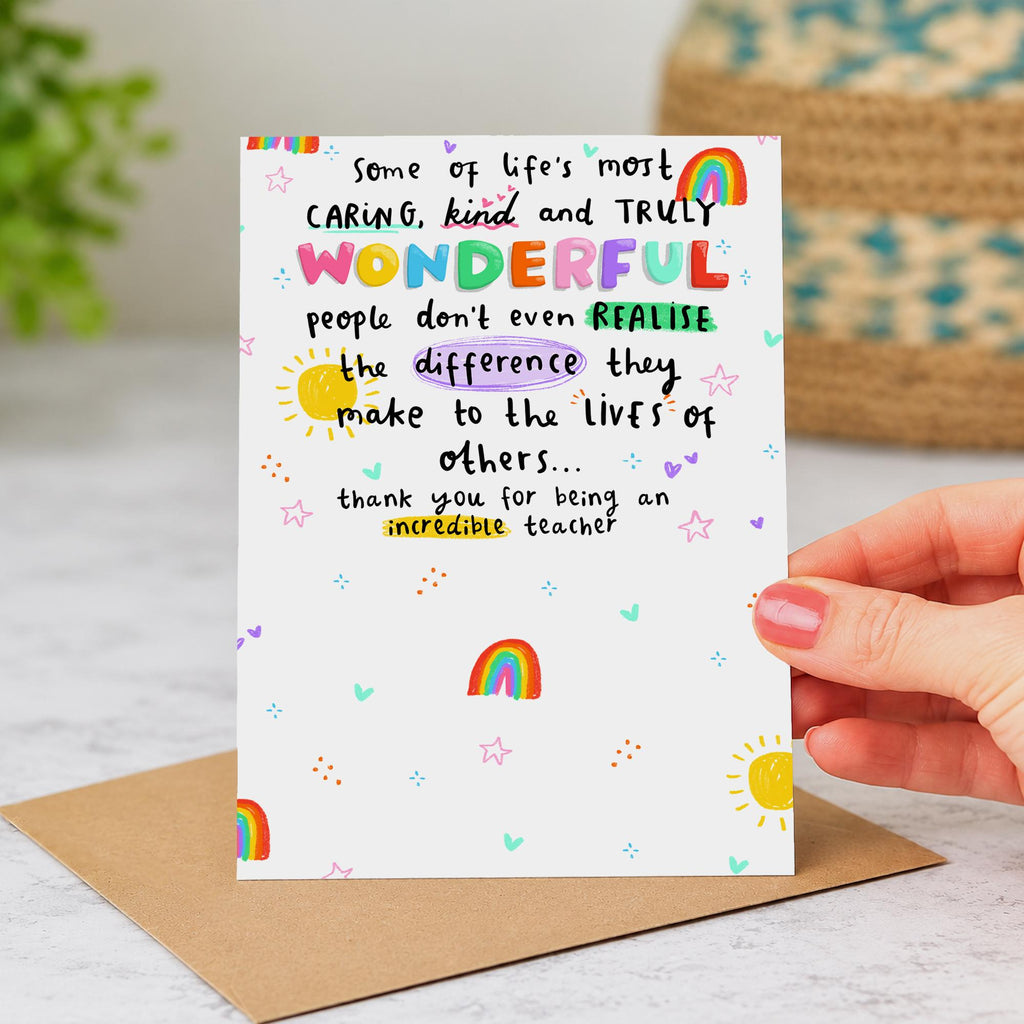 Some of life's most
CARING, kind and TRULY
WONDERFUL
people don't even REALISE
the difference they
make to the LIVES of
others...
thank you for being an
incredible teacher